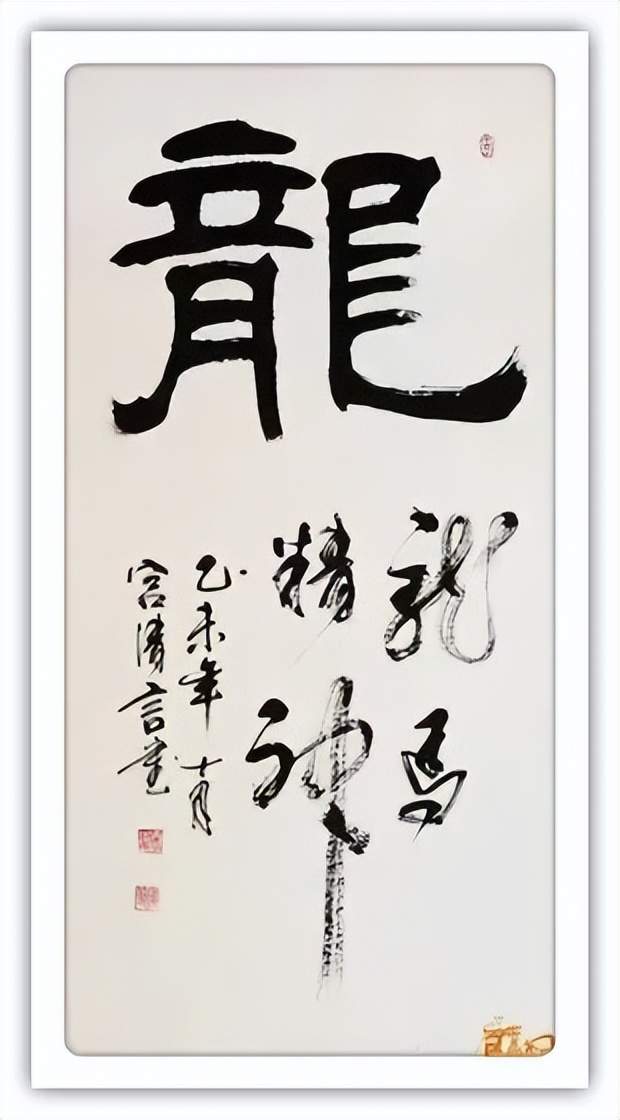 龍
龍马
精神
乙未年十月
宫清言書